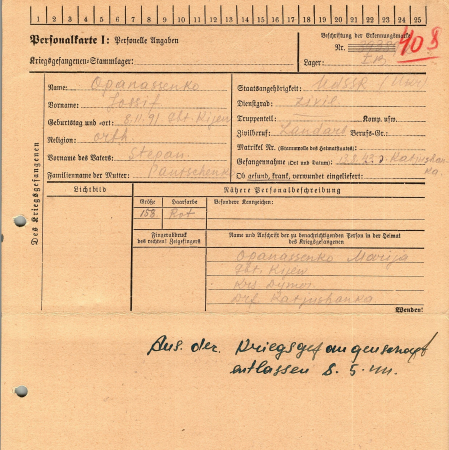 1 2 3 4 5 6 7 8 9 10 11 12 13 14 15 16 17 18 19 20 21 22 23 24 25
Personalkarte I: Personelle Angaben
Kriegsgefangenen-Stammlager:
Beschriftung der Erkennungsmarke
Nr.
408
Lager:
Des Kriegsgefangenen
Name: Opanassenko
Vorname: Jossif
Geburtstag und -ort: Gbt. Kijew
Religion: orth.
Vorname des Vaters: Stepan
Familienname der Mutter: Pantschenko
Staatsangehörigkeit: UdSSR
Dienstgrad: zivil
Truppenteil: Komp. usw.
Zivilberuf: Landarb. Berufs-Gr.:
Matrikel Nr. (Stammrolle des Heimatstaates):
Gefangennahme (Ort und Datum): Ratjushan-
ka.
Ob gesund, krank, verwundet eingeliefert:
Lichtbild
Nähere Personalbeschreibung
Größe Haarfarbe Besondere Kennzeichen:
158 Rot
Fingerabdruck
des rechten! Zeigefingers!
Name und Anschrift der zu benachrichtigenden Person in der Heimat
des Kriegsgefangenen
Opanassenko Marija
Gbt. Kijew
Krs. Dymer
Drf. Ratjushanka
Wenden!
Aus der Kriegsgefangenschaft
entlassen 8.5.